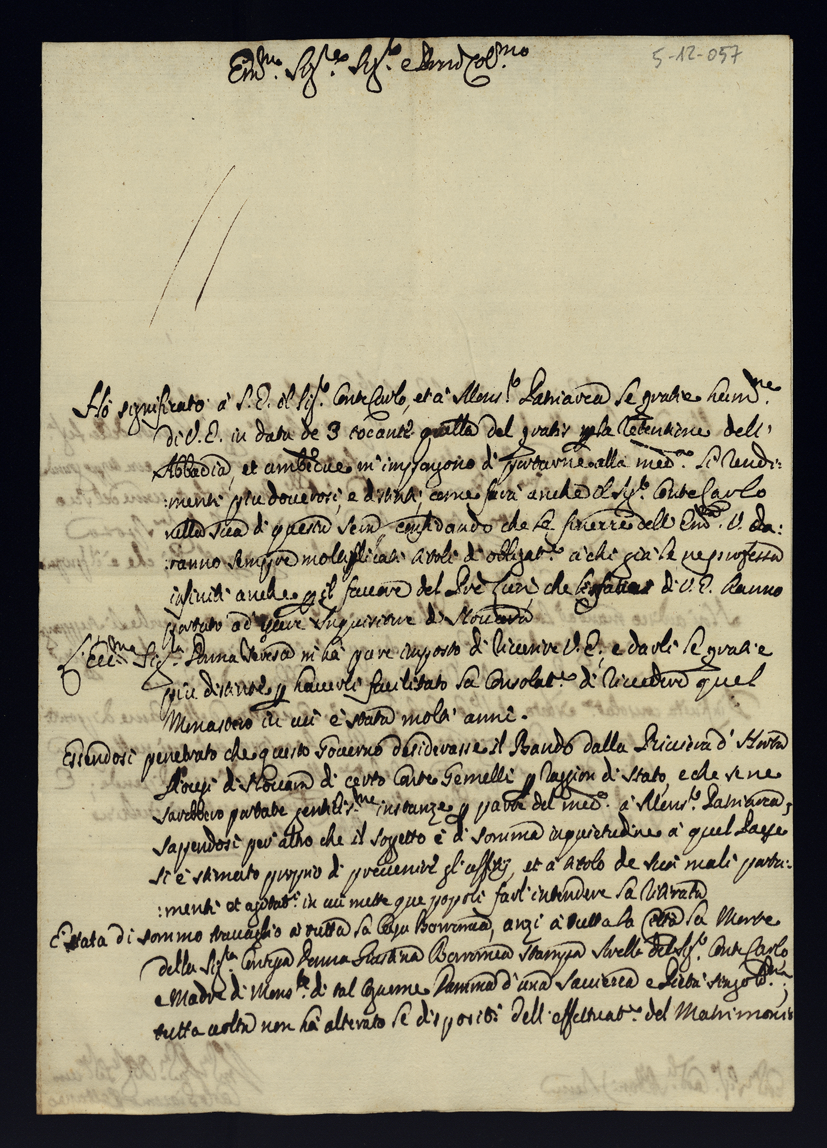 5-12-057
Em.mo Sig.re Sig.r e Pron Col.mo
Hò significato à S. E. il Sig.r Conte Carlo, et à Mons.r Patriarca le gratie
di V. E. in data de 3 toccanti quella del gratis p la retentione dell'
Abbadia, et ambidue m'impongono di portarne alla med.a li rendi:
:menti piu doverosi, e distinti, come farà anche il Sig.r Conte Carlo
nella sua di questa sera, confidando che le finezze dell' Em.a V. sa:
:ranno sempre moltiplicati titoli di obligat.e à chi già le ne professa
infiniti anche p il favore del Pre che di V. E. hanno
portato ad Inquisitore di Novara
L'Ecc.ma Sig.ra Donna Teresa m'hà pure imposto di riverire V. E., e darli le gratie
piu distinte p haverli facilitato la consolat.e di rivedere quel
Monastero in cui è stata molti anni.
Essendosi penetrato che questo Governo desiderasse il Bando dalla Riviera d' Horta
Diocesi di Novara di certo Conte Gemelli p raggion di stato, e che se ne
sarebbero portate gentiliss.me instanze p parte del med.o à Mons.r Patriarca,
sapendosi per altro che il sogetto è di somma inquietudine à quel Paese
si è stimato proprio di prevenire gli uffitij, et à titolo de suoi mali porta:
:menti et agitat.i in cui mette que popoli farl' intendere la ritirata
È stata di sommo travaglio à tutta la Casa Borromea, anzi à tutta la Città la Morte
della Sig.ra Contessa Donna Giustina Borromea Stampa Sorella del Sig.r Conte Carlo,
e Madre di Mons.re di tal Cognome Damma d'una saviezza e Pietà singol.ma;
tutta volta non hà alterato le dispositi dell' effettuat.e del Matrimonio